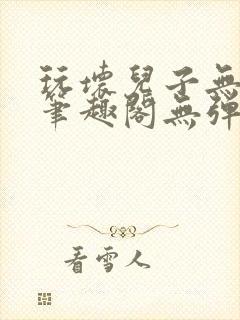 玩壞兒子無
筆趣閣無彈
看雪人